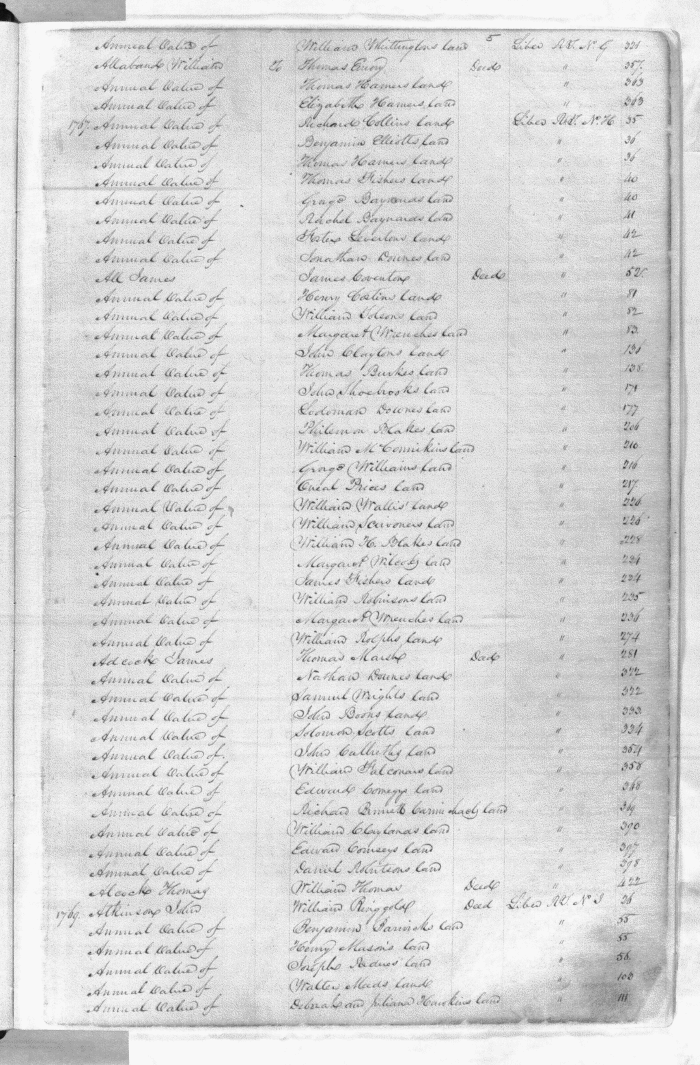 5
Annual Value of William Whittingtons land Liber R.T. N. G 331
Allaband William Thomas Emory Deed " 357
Annual Value of Thomas Hamers land " 363
Annual Value of Elizabeth Hamers land " 363
1767 Annual Value of Richard Collins land Liber R.T. N. H. 35
Annual Value of Benjamin Elliotts land " 36
Annual Value of Thomas Hamers land " 36
Annual Value of Thomas Fishers land " 40
Annual Value of Baynards land " 40
Annual Value of Rachel Baynards land " 41
Annual Value of Levertons land " 42
Annual Value of Jonathan Downes land " 42
All James James Coventon Deed " 52
Annual Value of Henry Costins land " 81
Annual Value of William land " 82
Annual Value of Margaret Wrenches land " 83
Annual Value of John Claytons land " 136
Annual Value of Thomas Burkes land " 138
Annual Value of John land " 171
Annual Value of Downes land " 177
Annual Value of Philemon Blakes land " 206
Annual Value of William land " 210
Annual Value of George Williams land " 216
Annual Value of Prices land " 217
Annual Value of William Wallis' land " 226
Annual Value of William land " 226
Annual Value of William H. Blakes land " 228
Annual Value of Margaret land " 234
Annual Value of James Fishers land " 234
Annual Value of William Robinsons land " 235
Annual Value of Margaret Wrenches land " 236
Annual Value of William Rolphs land " 274
Adcock James Thomas Marsh Deed " 281
Annual Value of Nathan Downes land " 322
Annual Value of Samuel Wrights land " 322
Annual Value of John Boons land " 333
Annual Value of Solomon Scotts land " 334
Annual Value of John land " 354
Annual Value of William Falconars land " 358
Annual Value of Edward Comegys land " 368
Annual Value of Richard Bennett Carmichaels land " 369
Annual Value of William Claylands land " 390
Annual Value of Edward Comegys land " 397
Annual Value of Daniel Robinsons land " 398
Alcock Thomas William Thomas Deed " 422
1769 Atkinson John William Ringgold Deed Liber R.T. N. I 26
Annual Value of Benjamin land " 55
Annual Value of Henry Masons land " 55
Annual Value of Josephs land " 56
Annual Value of Walter Meads land " 106
Annual Value of Deborah and Juliana Hawkins land " 111